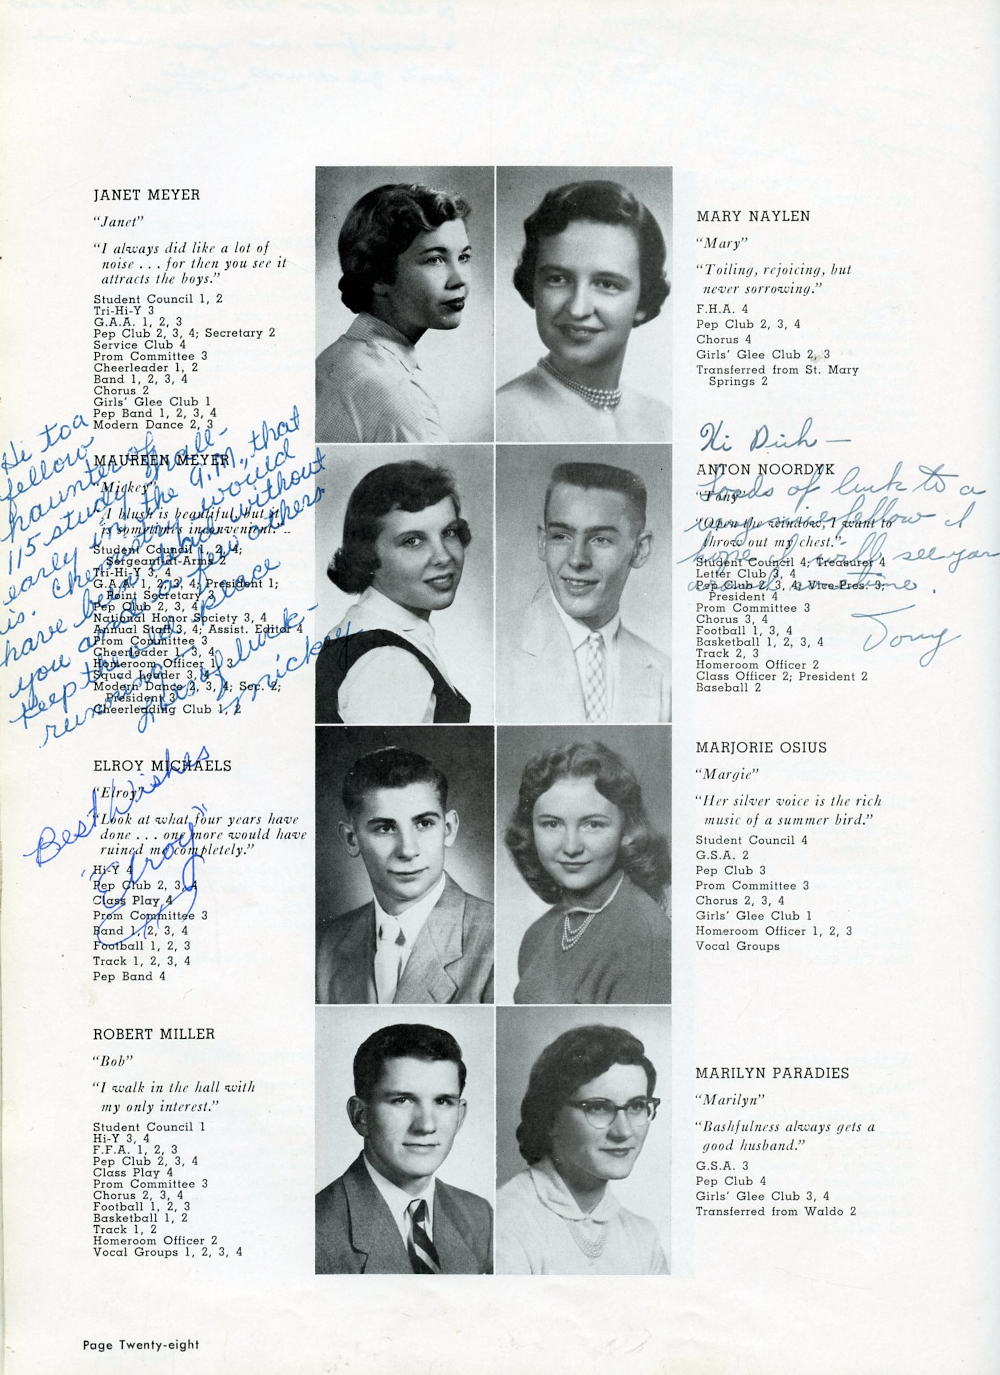 JANET MEYER
"Janet"
"I always did like a lot of
noise . . . for then you see it
attracts the boys."
Student Council 1, 2
Tri-Hi-Y 3
G.A.A. 1, 2, 3
Pep Club 2, 3, 4; Secretary 2
Service Club 4
Prom Committee 3
Cheerleader 1, 2
Band 1, 2, 3, 4
Chorus 2
Girls' Glee Club 1
Pep Band 1, 2, 3, 4
Modern Dance 2, 3
Hi to a
fellow
haunter of
115 study hall-
early in the A.M., that
is. Chemistry would
have been dead without
you and a few others
keep the old place
running.
Lots of luck-
Mickey
MAUREEN MEYER
"Mickey"
"I blush is beautiful, but it
is sometimes inconvenient."
Student Council 1, 2, 4;
Sergeant-at-Arms 2
Tri-Hi-Y 3, 4
G.A.A. 1, 2, 3, 4; President 1;
Point Secretary 3
Pep Club 2, 3, 4
National Honor Society 3, 4
Annual Staff 3, 4; Assist. Editor 4
Prom Committee 3
Cheerleader 1, 3, 4
Homeroom Officer 1, 3
Squad Leader 3, 4
Modern Dance 2, 3, 4; Sec. 2;
President 3
Cheerleading Club 1, 2
ELROY MICHAELS
"Elroy"
"Look at what four years have
done . . . one more would have
ruined me completely."
Hi-Y 4
Pep Club 2, 3, 4
Class Play 4
Prom Committee 3
Band 1, 2, 3, 4
Football 1, 2, 3
Track 1, 2, 3, 4
Pep Band 4
Best Wishes
"Elroy"
ROBERT MILLER
"Bob"
"I walk in the hall with
my only interest."
Student Council 1
Hi-Y 3, 4
F.F.A. 1, 2, 3
Pep Club 2, 3, 4
Class Play 4
Prom Committee 3
Chorus 2, 3, 4
Football 1, 2, 3
Basketball 1, 2
Track 1, 2
Homeroom Officer 2
Vocal Groups 1, 2, 3, 4
MARY NAYLEN
"Mary"
"Toiling, rejoicing, but
never sorrowing."
F.H.A. 4
Pep Club 2, 3, 4
Chorus 4
Girls' Glee Club 2, 3
Transferred from St. Mary
Springs 2
Hi Dick —
Loads of luck to a
very nice fellow I
hope I will see you
time.
Tony
ANTON NOORDYK
"Tony"
"Open the window, I want to
throw out my chest."
Student Council 4; Treasurer 4
Letter Club 3, 4
Pep Club 2, 3, 4; Vice-Pres. 3;
President 4
Prom Committee 3
Chorus 3, 4
Football 1, 3, 4
Basketball 1, 2, 3, 4
Track 2, 3
Homeroom Officer 2
Class Officer 2; President 2
Baseball 2
MARJORIE OSIUS
"Margie"
"Her silver voice is the rich
music of a summer bird."
Student Council 4
G.S.A. 2
Pep Club 3
Prom Committee 3
Chorus 2, 3, 4
Girls' Glee Club 1
Homeroom Officer 1, 2, 3
Vocal Groups
MARILYN PARADIES
"Marilyn"
"Bashfulness always gets a
good husband."
G.S.A. 3
Pep Club 4
Girls' Glee Club 3, 4
Transferred from Waldo 2
Page Twenty-eight